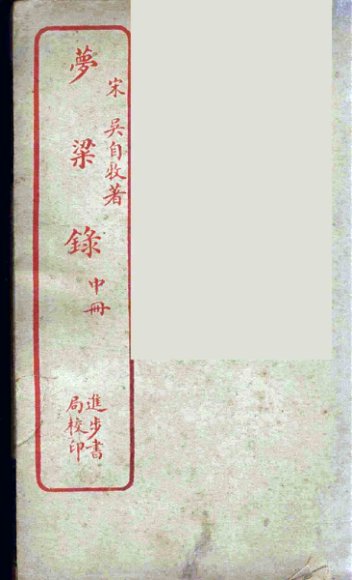 宋 吳自牧著
夢梁錄 中冊
進步書
局校印